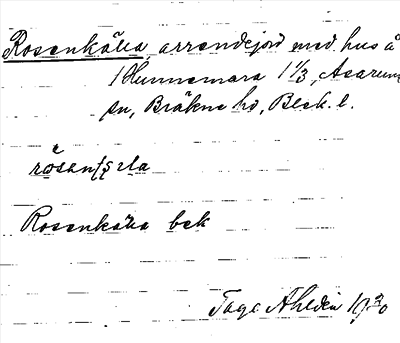 Rosenkälla, arrendejord med hus å
Hunnemara 1 1/3, Asarums
sn, Bräkne hd, Blek. l.
Rosenkälla bek
Tage Ahldén 1930